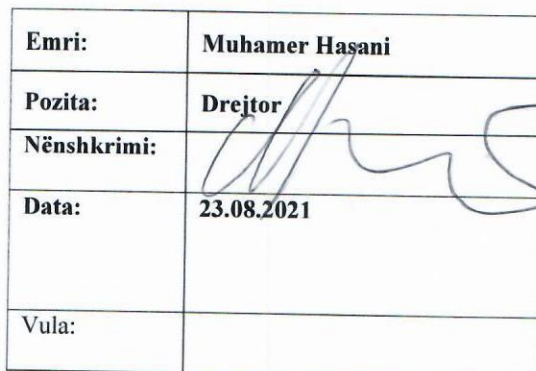 Emri: Muhamer Hasani
Pozita: Drejtor
Nënshkrimi:
Data: 23.08.2021
Vula: